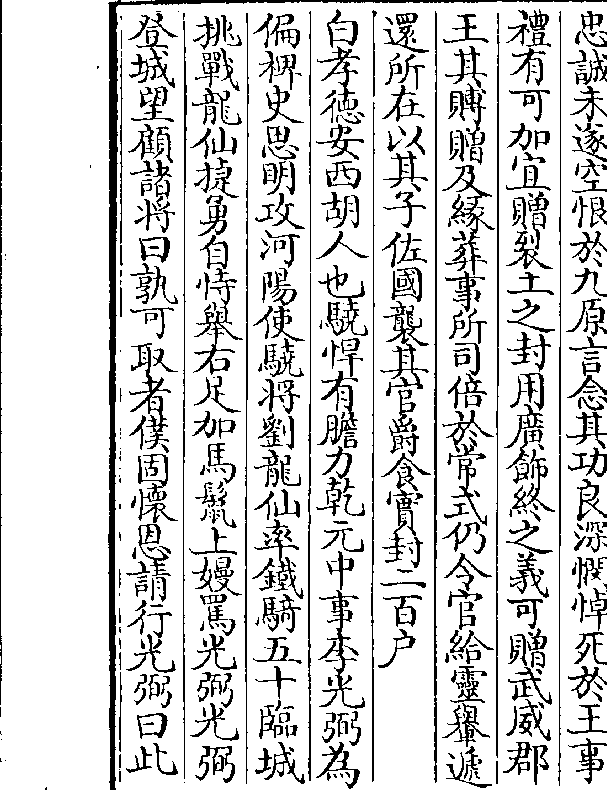 忠誠未遂空恨於九原言念其功良深憫悼死於王事
禮有可加宜贈裂土之封用廣飾終之義可贈武威郡
王其賻贈及緣葬事所司倍於常式仍令官給靈轝遞
還所在以其子佐國襲其官爵食實封二百户
白孝德安西胡人也驍悍有膽力乾元中事李光弼為
偏裨史思明攻河陽使驍將劉龍仙率鐵騎五十臨城
挑戰龍仙捷勇自恃舉右足加馬鬛上嫚罵光弼光弼
登城望顧諸將曰孰可取者僕固懷恩請行光弼曰此